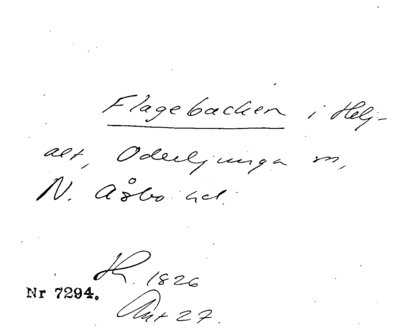 Flagebacken i Helj-
alt, Oderljunga sn,
N. Åsbo hd.
H. 1826
Nr 7294.
Ant 27.